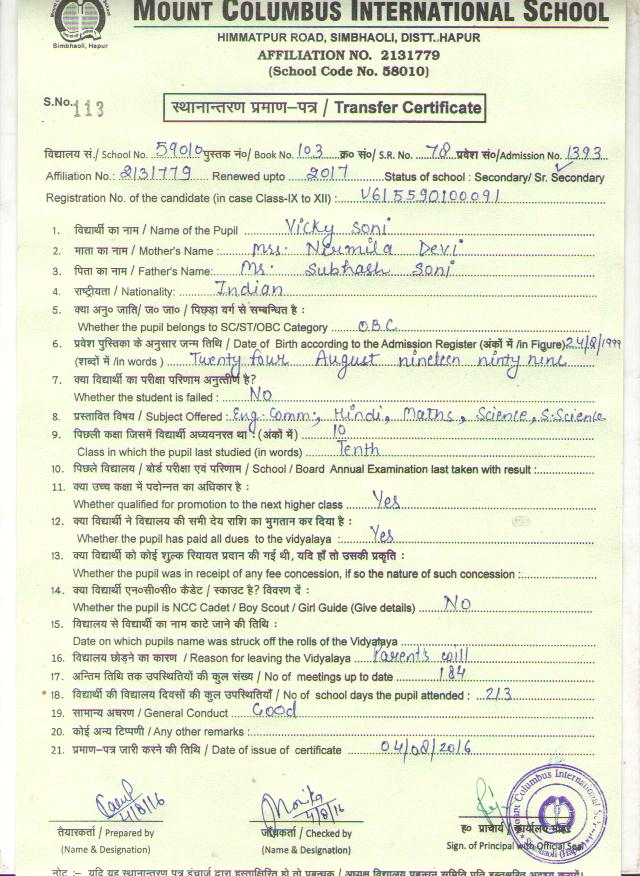 MOUNT COLUMBUS INTERNATIONAL SCHOOL
Simbhaoli, Hapur
HIMMATPUR ROAD, SIMBHAOLI, DISTT..HAPUR
AFFILIATION NO. 2131779
(School Code No. 58010)
S.No. 113
स्थानान्तरण प्रमाण–पत्र / Transfer Certificate
विद्यालय सं./ School No. 59010 पुस्तक नं०/ Book No. 103 क्र० सं०/ S.R. No. 78 प्रवेश सं०/Admission No. 1393
Affiliation No.: 2131779 Renewed upto 2017 Status of school : Secondary/ Sr. Secondary
Registration No. of the candidate (in case Class-IX to XII) : V615590100091
1. विद्यार्थी का नाम / Name of the Pupil Vicky Soni
2. माता का नाम / Mother's Name : Mrs. Nirmila Devi
3. पिता का नाम / Father's Name: Mr. Subhash Soni
4. राष्ट्रीयता / Nationality: Indian
5. क्या अनु० जाति/ ज० जा० / पिछड़ा वर्ग से सम्बन्धित है :
Whether the pupil belongs to SC/ST/OBC Category OBC
6. प्रवेश पुस्तिका के अनुसार जन्म तिथि / Date of Birth according to the Admission Register (अंकों में /in Figure) 24/8/1999
(शब्दों में /in words ) Twenty four August nineteen ninty nine
7. क्या विद्यार्थी का परीक्षा परिणाम अनुत्तीर्ण है?
Whether the student is failed : No
8. प्रस्तावित विषय / Subject Offered : Eng. Comm., Hindi, Maths, Science, S.Science
9. पिछली कक्षा जिसमें विद्यार्थी अध्ययनरत था : (अंकों में ) 10
Class in which the pupil last studied (in words) Tenth
10. पिछले विद्यालय / बोर्ड परीक्षा एवं परिणाम / School / Board Annual Examination last taken with result :
11. क्या उच्च कक्षा में पदोन्नत का अधिकार है :
Whether qualified for promotion to the next higher class Yes
12. क्या विद्यार्थी ने विद्यालय की सभी देय राशि का भुगतान कर दिया है :
Whether the pupil has paid all dues to the vidyalaya : Yes
13. क्या विद्यार्थी को कोई शुल्क रियायत प्रदान की गई थी, यदि हाँ तो उसकी प्रकृति :
Whether the pupil was in receipt of any fee concession, if so the nature of such concession :
14. क्या विद्यार्थी एन०सी०सी० कैडेट / स्काउट है? विवरण दें :
Whether the pupil is NCC Cadet / Boy Scout / Girl Guide (Give details) No
15. विद्यालय से विद्यार्थी का नाम काटे जाने की तिथि :
Date on which pupils name was struck off the rolls of the Vidyataya
16. विद्यालय छोड़ने का कारण / Reason for leaving the Vidyalaya Parents will
17. अन्तिम तिथि तक उपस्थितियों की कुल संख्य / No of meetings up to date 184
18. विद्यार्थी की विद्यालय दिवसों की कुल उपस्थितियाँ / No of school days the pupil attended : 213
19. सामान्य अचरण / General Conduct Good
20. कोई अन्य टिप्पणी / Any other remarks :
21. प्रमाण-पत्र जारी करने की तिथि / Date of issue of certificate 04/08/2016
4/8/16 Monika 4/8/16
तैयारकर्ता / Prepared by
(Name & Designation)
जाँचकर्ता / Checked by
(Name & Designation)
ह० प्राचार्य / कार्यालय मोहर
Sign. of Principal with Official Seal
Mount Columbus International
नोट :– यदि यह स्थानान्तरण पत्र इंचार्ज द्वारा हस्ताक्षरित हो तो प्रबन्धक / अध्यक्ष विद्यालय प्रबन्धन समिति प्रति हस्ताक्षरित अवश्य करायें।